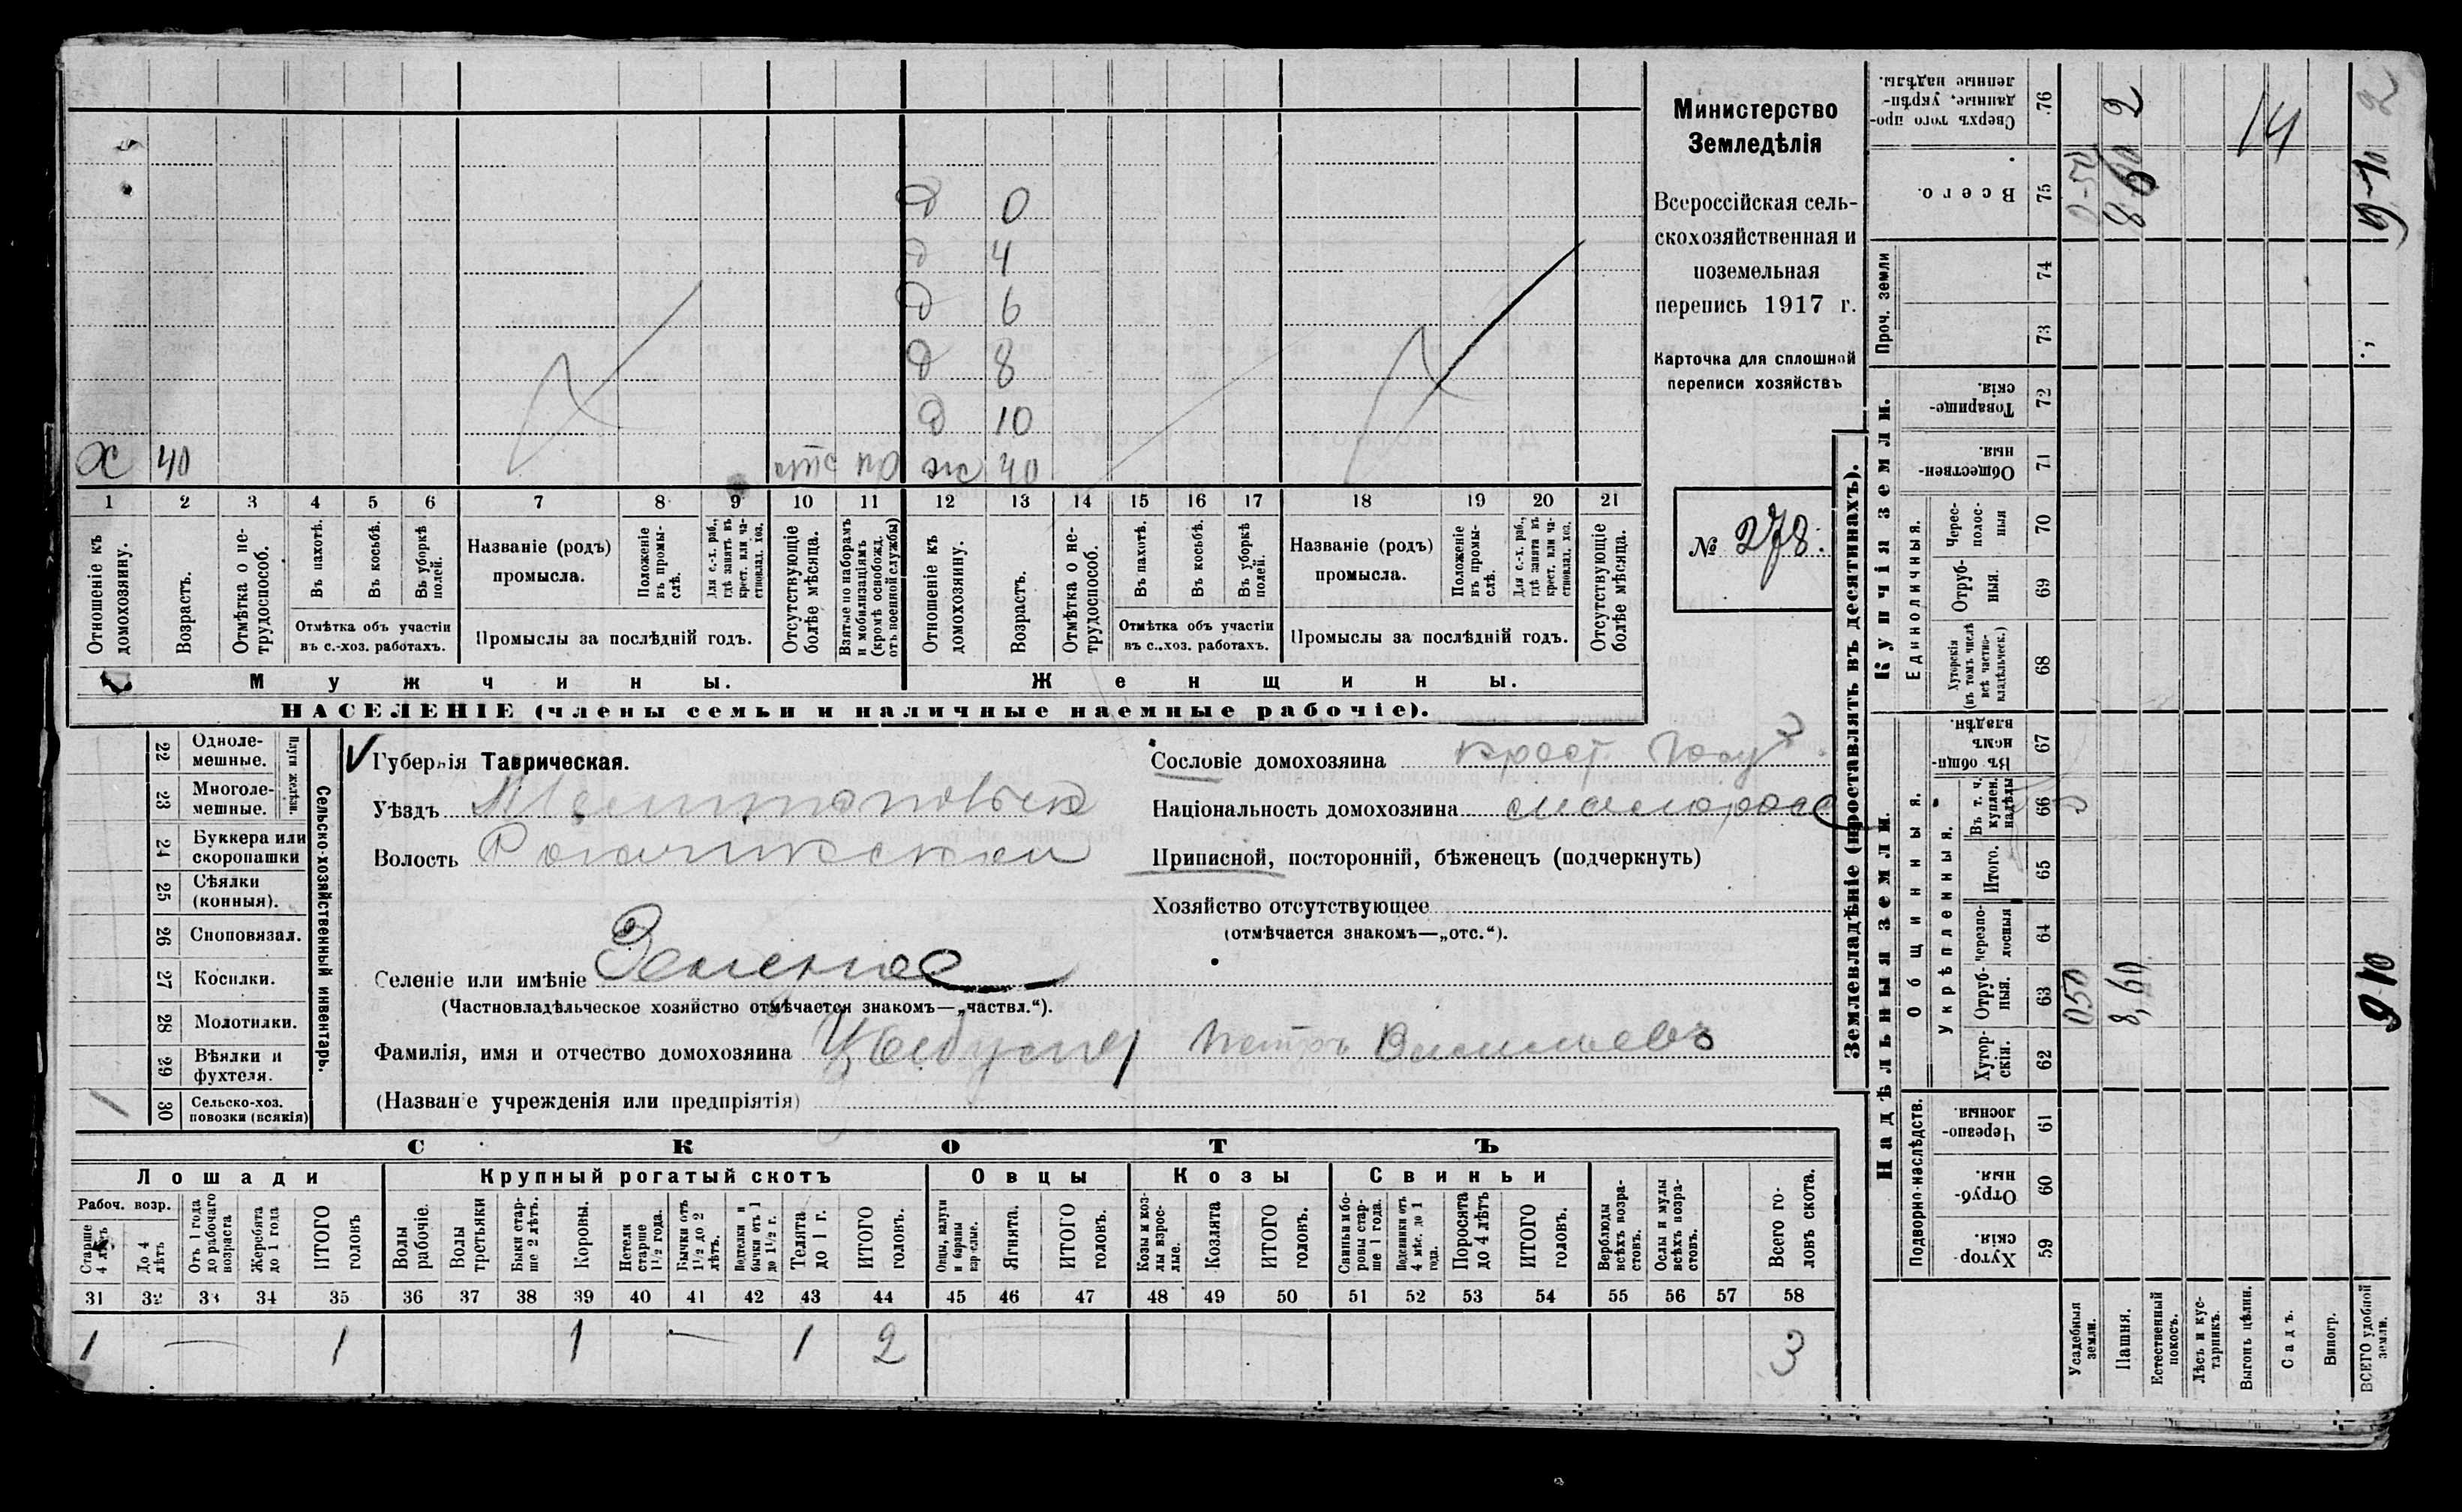 Министерство
Земледѣлія
Всероссійская сель-
скохозяйственная и
поземельная
перепись 1917 г.
Карточка для сплошной
переписи хозяйствъ
№ 278.
0
4
6
8
10
х 40 40
1 2 3 4 5 6 7 8 9 10 11 12 13 14 15 16 17 18 19 20 21
Отношеніе къ домохозяину.
Возрастъ.
Отмѣтка о не-трудоспособ.
Въ пахотѣ.
Въ косьбѣ.
Въ уборкѣ полей.
Отмѣтка объ участіи
въ с.-хоз. работахъ.
Названіе (родъ)
промысла.
Положеніе въ промы-слѣ.
Для с.-х. раб., гдѣ занятъ въ крест. или ча-стновлад. хоз.
Промыслы за послѣдній годъ.
Отсутствующіе болѣе мѣсяца.
Взятые по наборамъ и мобилизаціямъ (кромѣ освобожд. отъ военной службы)
Отношеніе къ домохозяину.
Возрастъ.
Отмѣтка о не-трудоспособ.
Въ пахотѣ.
Въ косьбѣ.
Въ уборкѣ полей.
Отмѣтка объ участіи
въ с..хоз. работахъ.
Названіе (родъ)
промысла.
Положеніе въ промы-слѣ.
Для с.-х. раб., гдѣ занята въ крест. или ча-стновлад. хоз.
Промыслы за послѣдній годъ.
Отсутствующіе болѣе мѣсяца.
Мужчины. Женщины.
НАСЕЛЕНІЕ (члены семьи и наличные наемные рабочіе).
22 Одноле-мешные.
23 Многоле-мешные.
Плуги желѣзн.
24 Буккера или скоропашки
25 Сѣялки (конныя).
26 Сноповязал.
27 Косилки.
28 Молотилки.
29 Вѣялки и фухтеля.
30 Сельско-хоз. повозки (всякія)
1
Сельско-хозяйственный инвентарь.
Губернія Таврическая.
Уѣздъ
Волость
Селеніе или имѣніе
(Частновладѣльческое хозяйство отмѣчается знакомъ—„частвл.“).
Фамилія, имя и отчество домохозяина Петръ Васильевъ
(Названіе учрежденія или предпріятія)
Сословіе домохозяина крест.
Національность домохозяина малоросс
Приписной, посторонній, бѣженецъ (подчеркнуть)
Хозяйство отсутствующее
(отмѣчается знакомъ—„отс.“).
СКОТЪ
Лошади Крупный рогатый скотъ Овцы Козы Свиньи
Рабоч. возр.
Старше 4 лѣтъ
До 4 лѣтъ
Отъ 1 года до рабочаго возраста
Жеребята до 1 года
ИТОГО головъ
Волы рабочіе.
Волы третьяки
Быки стар-ше 2 лѣтъ.
Коровы.
Нетели старше 1½ года.
Бычки отъ 1½ до 2 лѣтъ.
бычки отъ 1 до 1½ г.
Телята до 1 г.
ИТОГО головъ.
Овцы, валухи и бараны взрослые.
Ягнята.
ИТОГО головъ.
Козы и коз-лы взрос-лые.
Козлята
ИТОГО головъ.
Свиньи и бо-ровы стар-ше 1 года.
Подсвинки отъ 4 мѣс. до 1 года.
Поросята до 4 лѣтъ
ИТОГО головъ.
Верблюды всѣхъ возра-стовъ.
Ослы и мулы всѣхъ возра-стовъ.
Всего го-ловъ скота.
31 32 33 34 35 36 37 38 39 40 41 42 43 44 45 46 47 48 49 50 51 52 53 54 55 56 57 58
1 — 1 1 — 1 2 3
Землевладѣніе (проставлять въ десятинахъ).
Надѣльныя земли.
Купчія земли.
Подворно-наслѣдств.
Общинныя.
Укрѣпленныя.
Единоличныя.
Проч. земли
Хутор-скія. 59
Отруб-ныя. 60
Черезпо-лосныя. 61
Хутор-скія. 62
Отруб-ныя. 63
Черезпо-лосныя 64
Итого. 65
Въ т. ч. куплен. надѣлы 66
Въ общи-номъ владѣн. 67
Хуторскія (въ томъ числѣ всѣ частно-владѣльческ.) 68
Отруб-ныя. 69
Черес-полос-ныя 70
Обществен-ныя. 71
Товарище-скія. 72
73
74
Всего. 75
Сверхъ того про-данные, укрѣп-ленные надѣлы. 76
Усадебныя земли. 050 0-50
Пашня. 8,60 8 60 2
Естественный покосъ.
Лѣсъ и кус-тарникъ.
Выгонъ цѣлин. 14
Садъ.
Виногр.
ВСЕГО удобной земли. 9 10 9-10 2